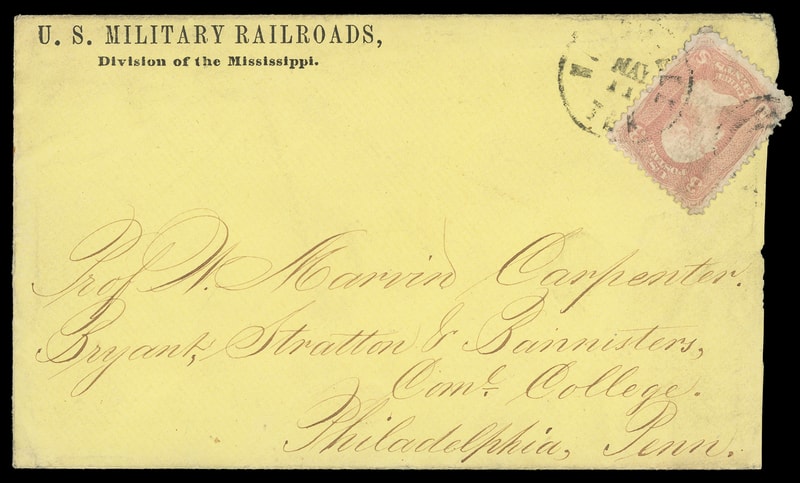 U. S. MILITARY RAILROADS,
Division of the Mississippi.
MAY
11
Prof W. Marvin Carpenter.
Bryant, Stratton & Bannisters,
Coml. College.
Philadelphia, Penn.